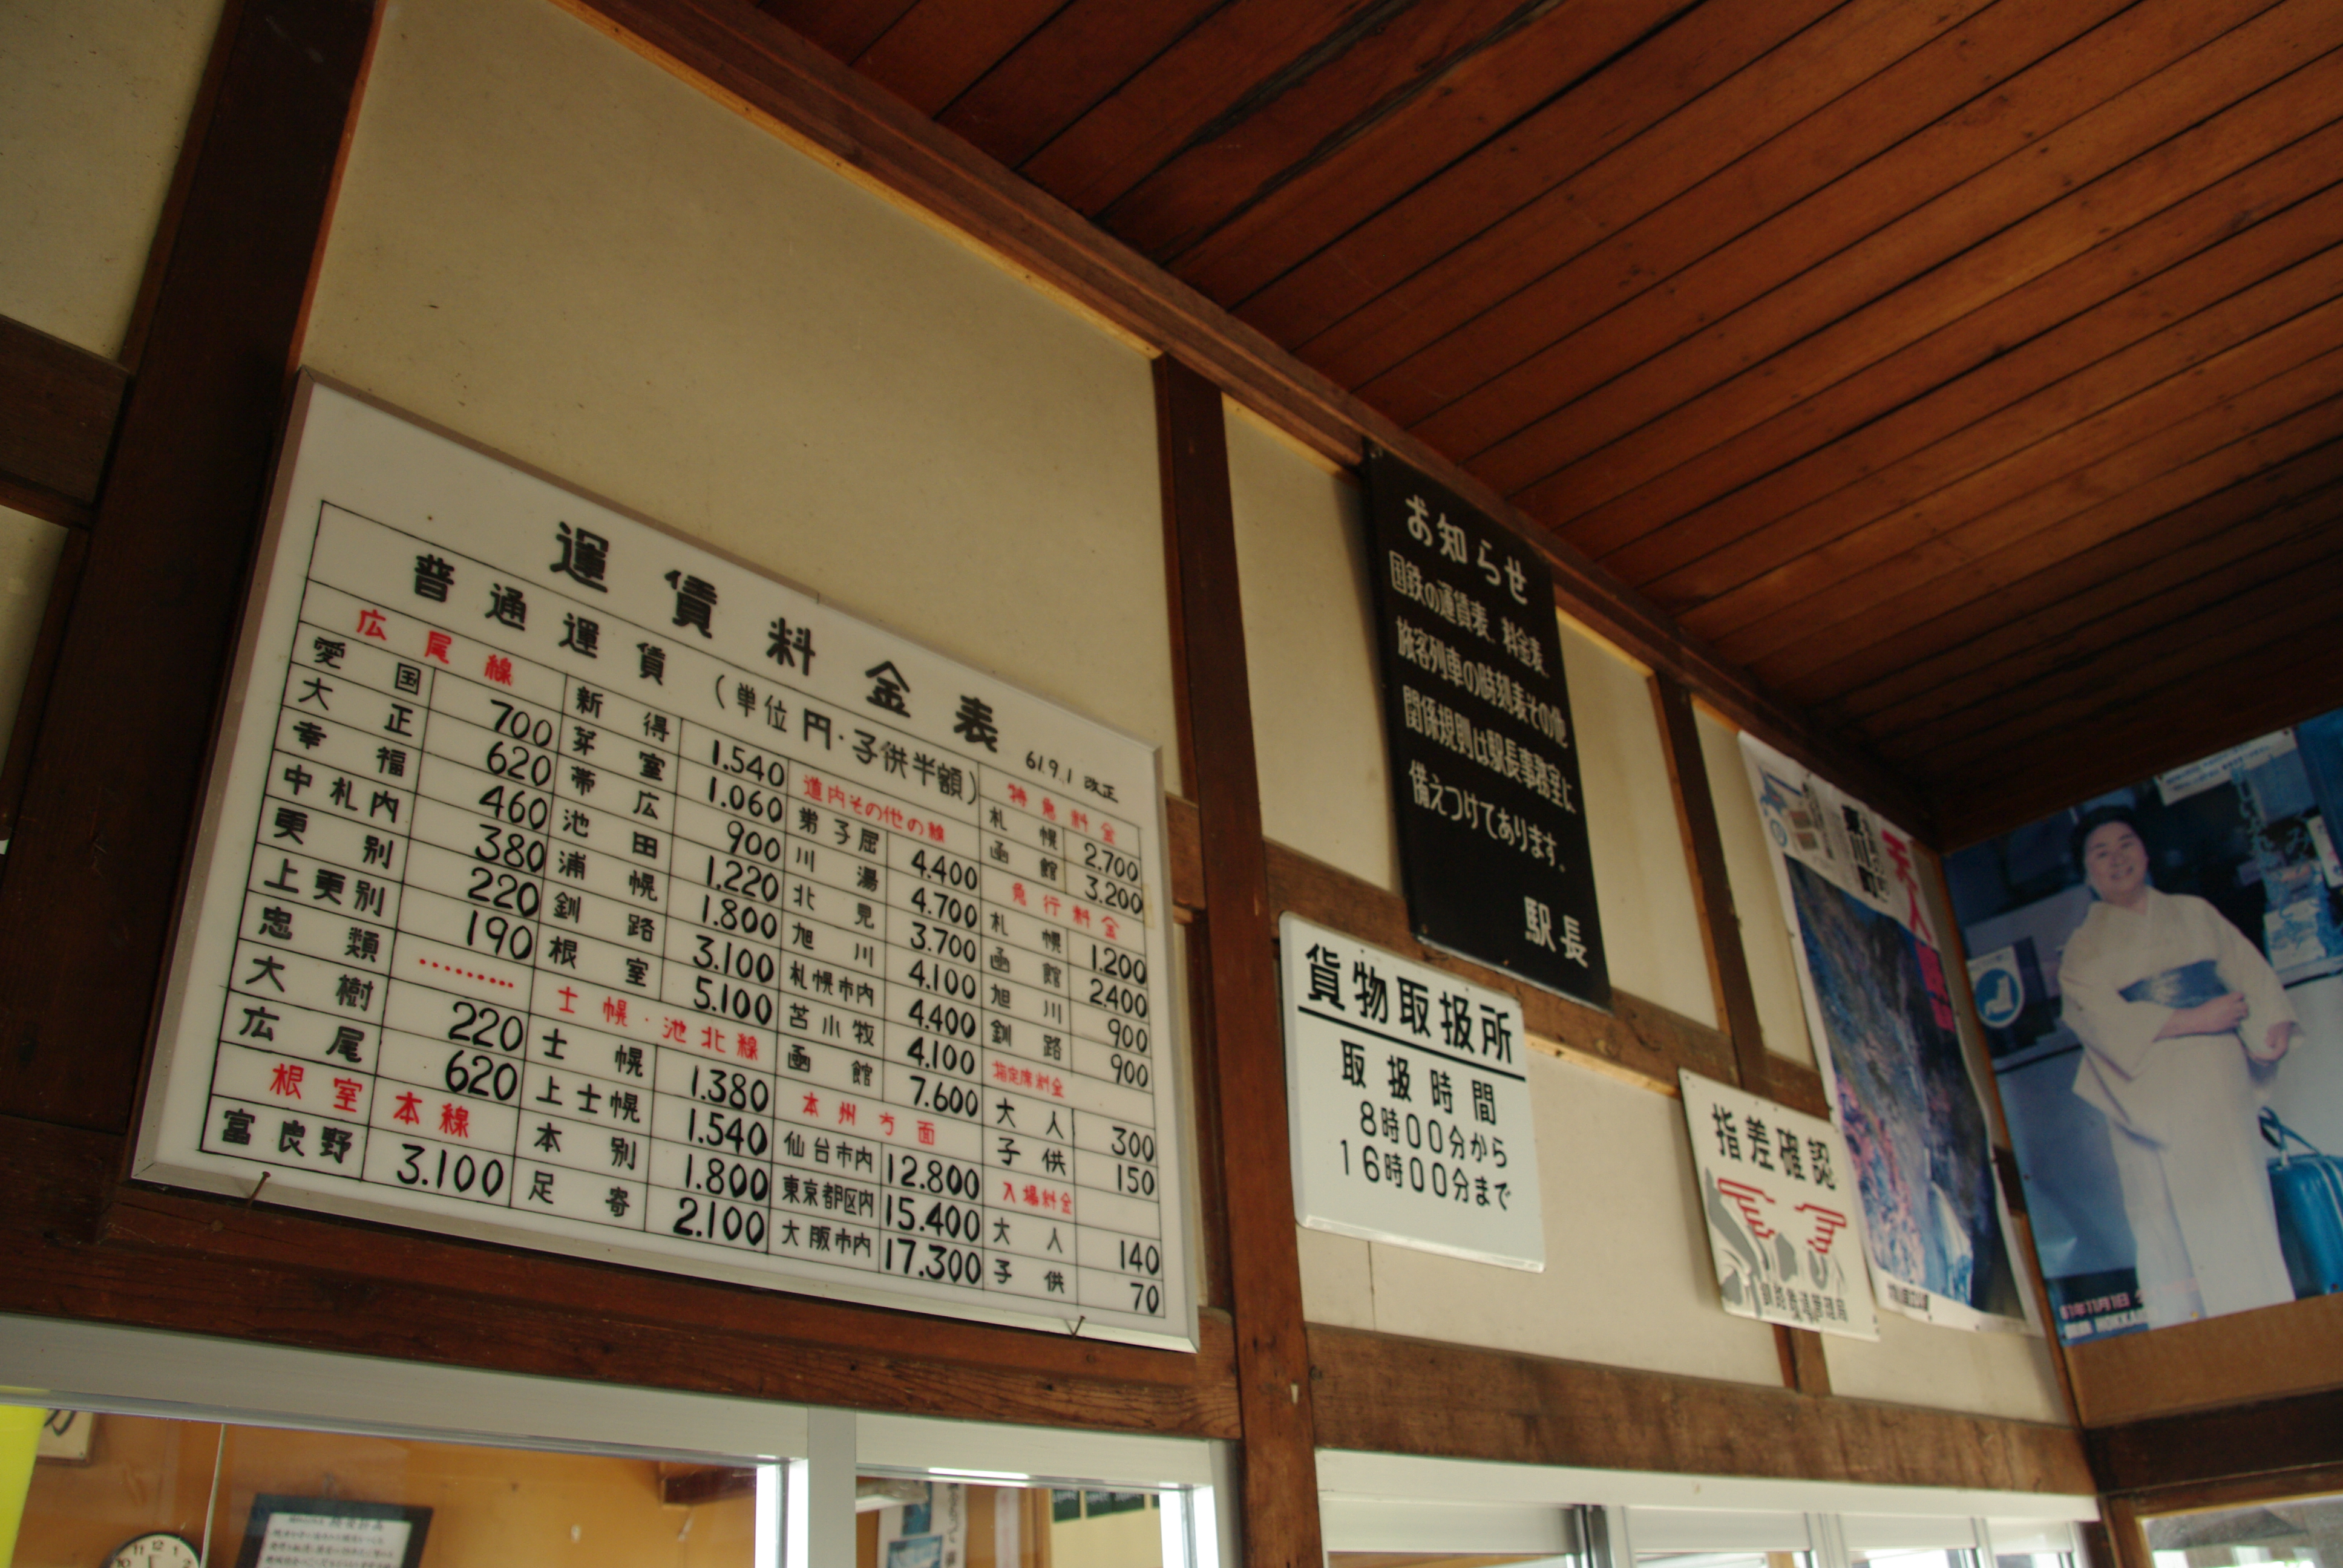 運賃料金表
61.9.1 改正
普通運賃 (単位 円・子供半額)
広尾線
愛国 700
大正 620
幸福 460
中札内 380
更別 220
上更別 190
忠類 ………
大樹 220
広尾 620
根室本線
富良野 3.100
新得 1.540
芽室 1.060
帯広 900
池田 1.220
浦幌 1.800
釧路 3.100
根室 5.100
士幌・池北線
士幌 1.380
上士幌 1.540
本別 1.800
足寄 2.100
道内その他の線
弟子屈 4.400
川湯 4.700
北見 3.700
旭川 4.100
札幌市内 4.400
苫小牧 4.100
函館 7.600
本州方面
仙台市内 12.800
東京都区内 15.400
大阪市内 17.300
特急料金
札幌 2.700
函館 3.200
急行料金
札幌 1.200
函館 2.400
旭川 900
釧路 900
指定席料金
大人 300
子供 150
入場料金
大人 140
子供 70
お知らせ
国鉄の運賃表、料金表、
旅客列車の時刻表その他
関係規則は駅長事務室に
備えつけてあります。
駅長
貨物取扱所
取扱時間
8時00分から
16時00分まで
指差確認
釧路鉄道管理局
天人
61年11月1日